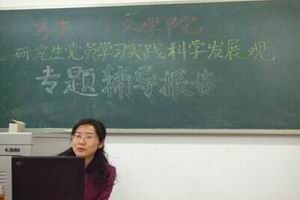 文学院
研究生党员学习实践科学发展观
专题辅导报告